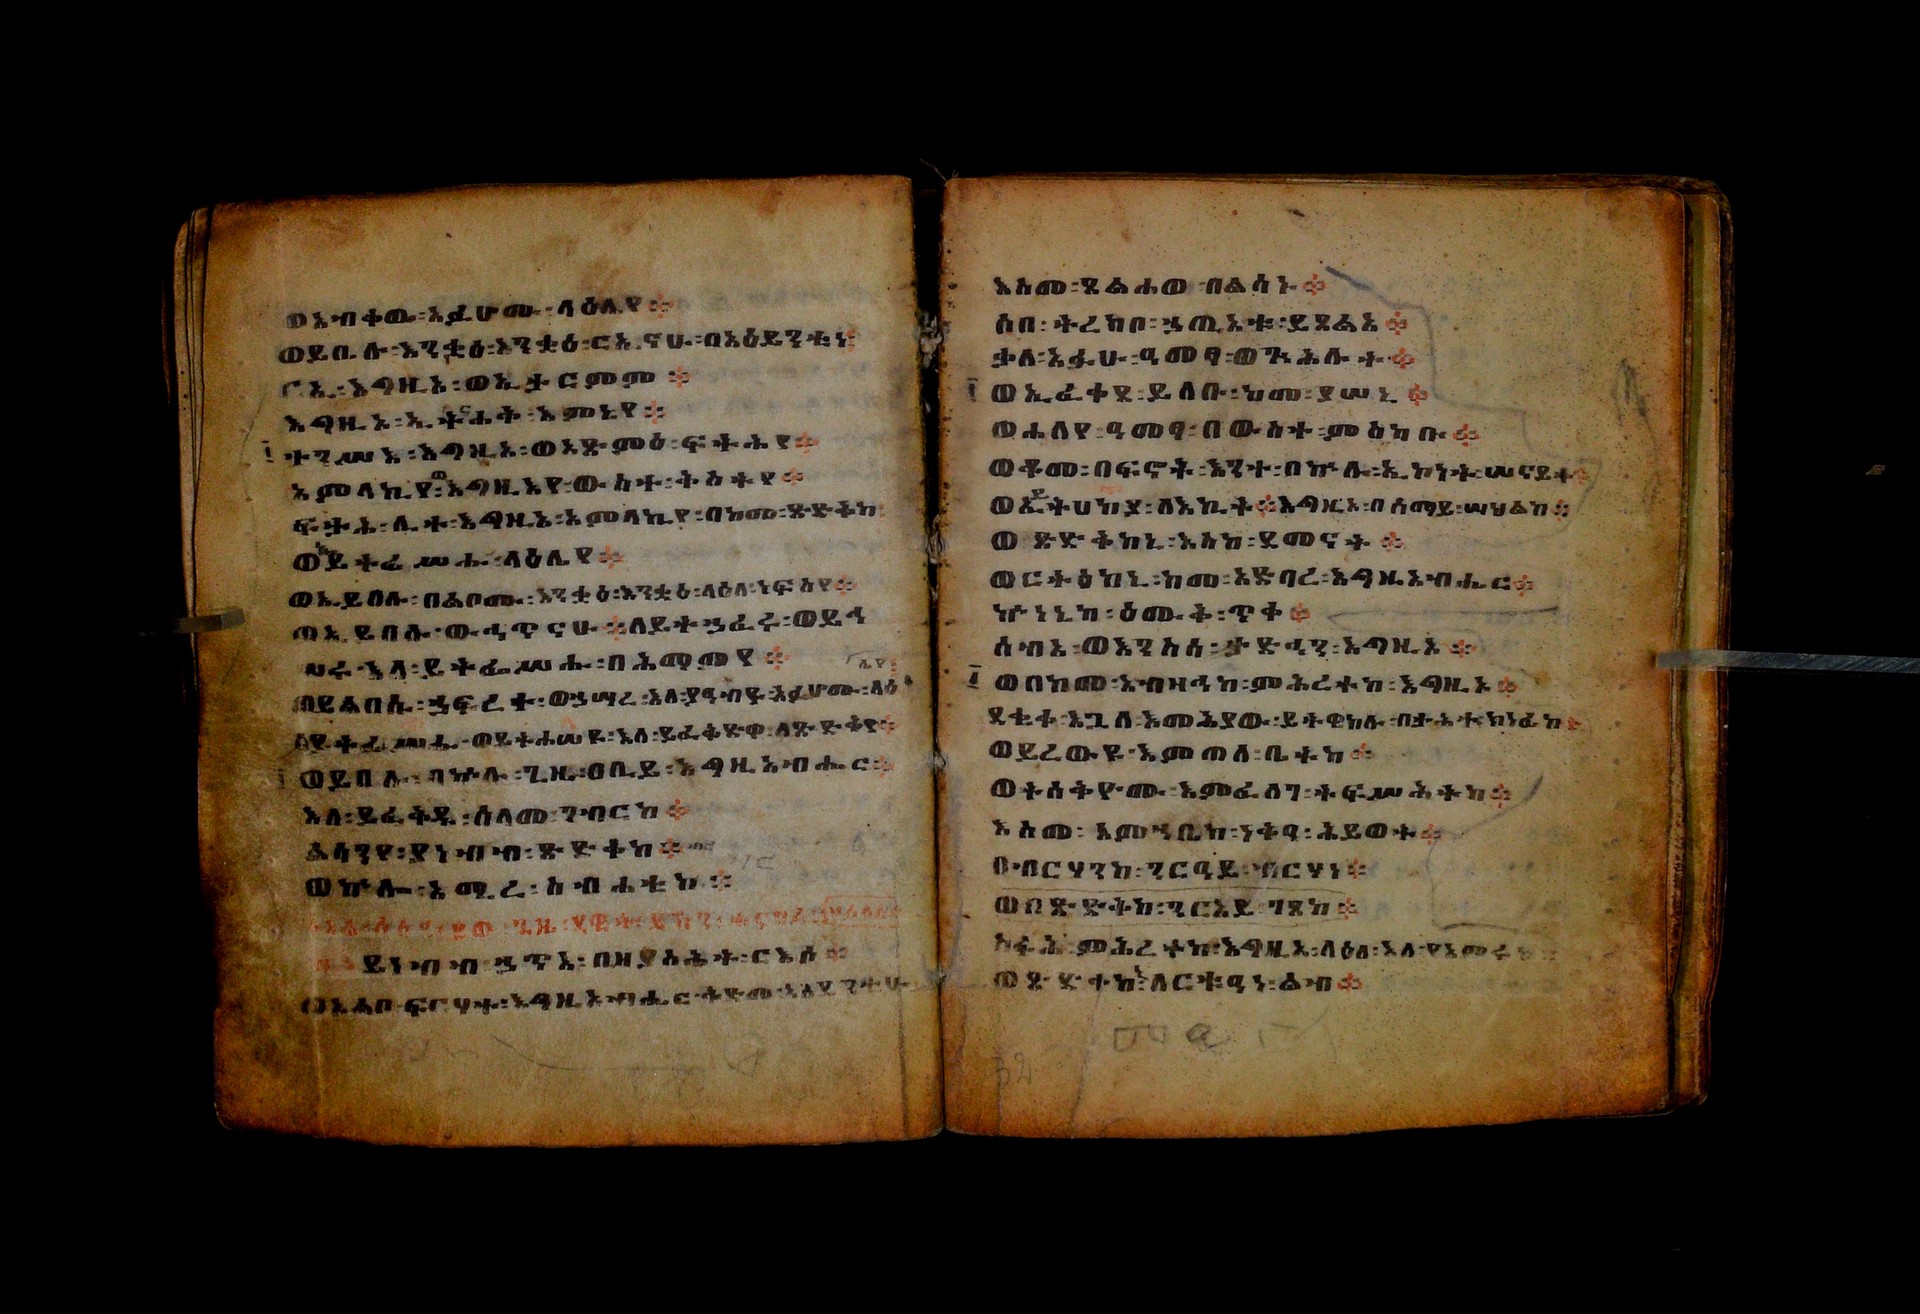 ወአብቀዉ፡አፈሆሙ፡ላዕሌየ፨
ወይቤሉ፡እንቋዕ፡እንቋዕ፡ርኢናሁ፡በአዕይንቲነ፨
ርኢ፡እግዚኦ፡ወኢታርምም፨
እግዚኦ፡ኢትርሐቅ፡እምኔየ፨
ተንሥእ፡እግዚኦ፡ወአጽምዕ፡ፍትሕየ፨
አምላኪየ፡ወእግዚእየ፡ውስተ፡ቅስትየ፨
ፍታሕ፡ሊተ፡እግዚኦ፡አምላኪየ፡በከመ፡ጽድቅከ፡
ወኢይትፈሥሑ፡ላዕሌየ፨
ወኢይበሉ፡በልቦሙ፡እንቋዕ፡እንቋዕ፡ላዕለ፡ነፍስየ፨
ወኢይበሉ፡ውኅጥናሁ፨ለይትኀፈሩ፡ወይኅ
ሠሩ፡እለ፡ይትፌሥሑ፡በሕማምየ፨
በይልበሱ፡ኀፍረተ፡ወኀሣረ፡እለ፡ያዓብዩ፡አፈሆሙ፡ላዕ
ሌየ፡
ለይትፈሥሑ፡ወይትሐሠዩ፡እለ፡ይፈቅድዋ፡ለጽድቅየ፨
ወይበሉ፡በኵሉ፡ጊዜ፡ዐቢይ፡እግዚአብሔር፨
እለ፡ይፈቅዱ፡ሰላመ፡ገብርከ፨
ልሳንየ፡ያነብብ፡ጽድቅከ፨
ወኵሎ፡አሚረ፡ስብሐቲከ፨
ይነብብ፡ኃጥእ፡በዘያስሕት፡ርእሰ፨
ወአልቦ፡ፍርሃተ፡እግዚአብሔር፡ቅድመ፡አዕይንቲሁ
እስመ፡ጸልሐወ፡በልሳኑ፨
ሶበ፡ትረክቦ፡ኃጢአቱ፡ይጸልእ፨
ቃለ፡አፉሁ፡ዓመፃ፡ወጕሕሉት፨
ወኢፈቀደ፡ይለቡ፡ከመ፡ያሠኒ፨
ወሐለየ፡ዓመፃ፡በውስተ፡ምስካቡ፨
ወቆመ፡በፍኖት፡እንተ፡በኵሉ፡ኢኮነት፡ሠናይት፨
ወኢተሀከያ፡ለእኪት፨እግዚኦ፡በሰማይ፡ሣህልከ፨
ወጽድቅከኒ፡እስከ፡ደመናት፨
ወርትዕከኒ፡ከመ፡አድባረ፡እግዚአብሔር፨
ኵነኔከ፡ዕሙቅ፡ጥቀ፨
ሰብአ፡ወእንስሳ፡ታድኅን፡እግዚኦ፨
ወበከመ፡አብዛኅከ፡ምሕረተከ፡እግዚኦ፨
ደቂቀ፡እጓለ፡እመሕያው፡ይትዌከሉ፡በታሕተ፡ክነፊከ፨
ወይረውዩ፡እምጠለ፡ቤትከ፨
ወትሰቅዮሙ፡እምፈለገ፡ትፍሥሕትከ፨
እስመ፡እምኀቤከ፡ነቅዓ፡ሕይወት፨
በብርሃንከ፡ንርዓይ፡ብርሃነ፨
ወበጽድቅከ፡ንርእይ፡ገጸከ፨
ስፋሕ፡ምሕረተከ፡እግዚኦ፡ላዕለ፡እለ፡ያአምሩከ፨
ወጽድቅከኒ፡ለርቱዓነ፡ልብ፨
32